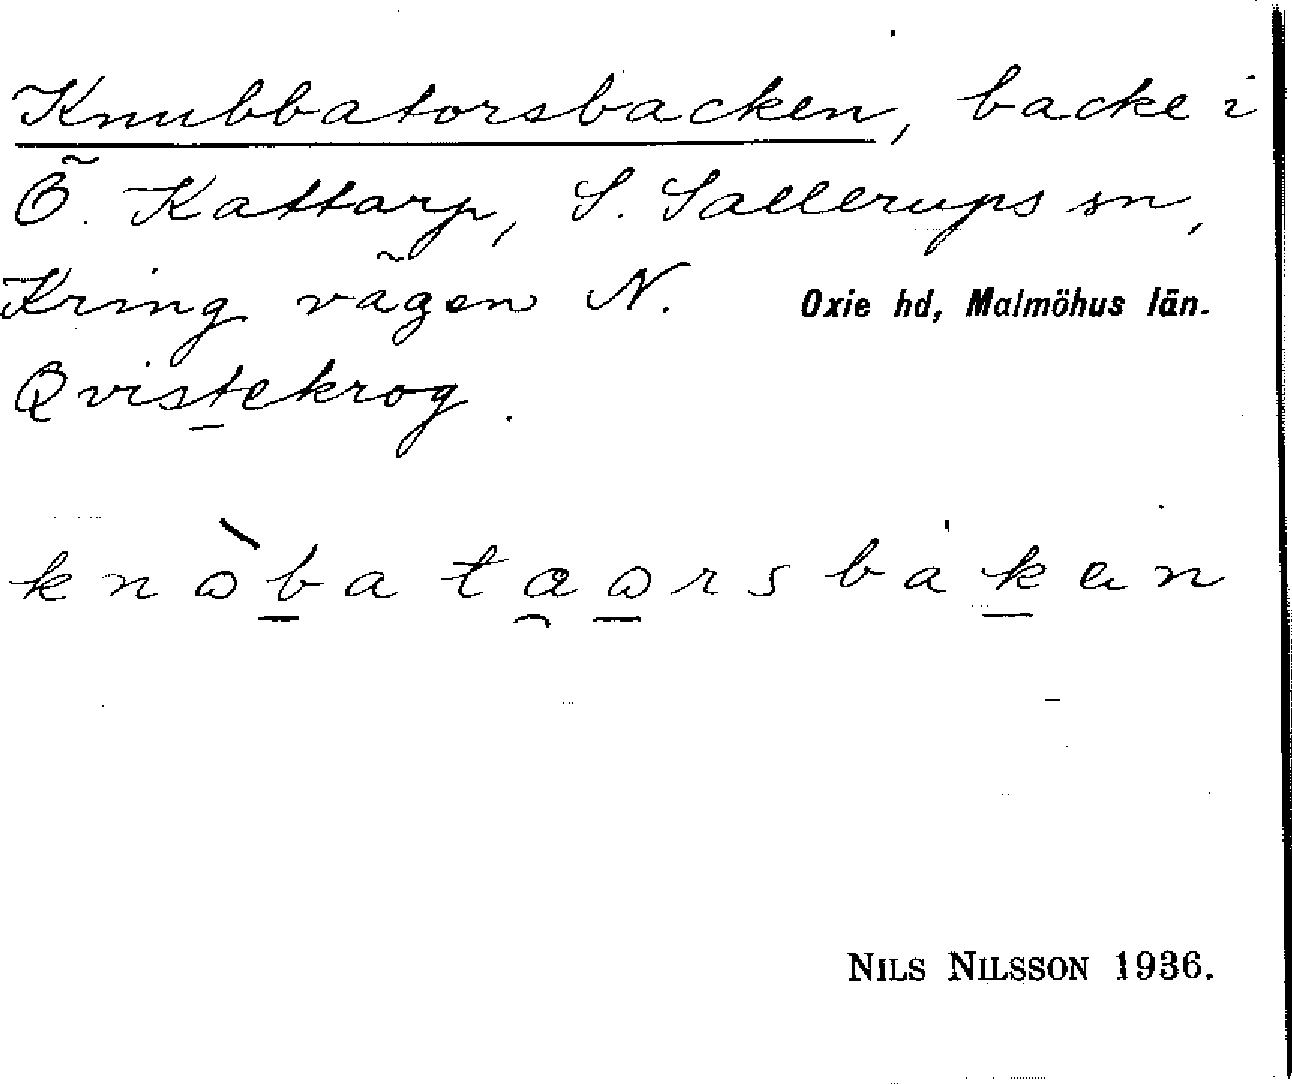 Knubbatorsbacken, backe i
Ö. Kattarp, S. Sallerups sn,
Kring vägen N. Oxie hd, Malmöhus län.
Qvistekrog.
knòbataorsbakan
NILS NILSSON 1936.